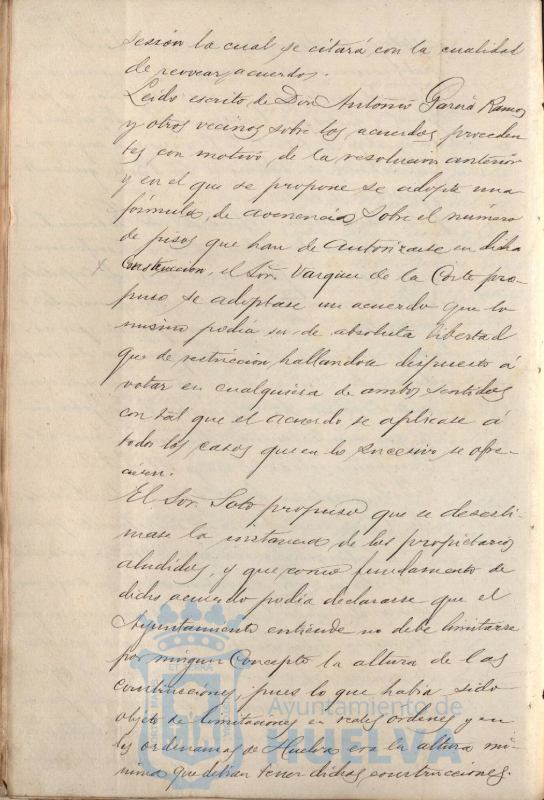 sesión la cual se citará con la cualidad
de revocar acuerdos.
Leido escrito de Don Antonio García Ramos
y otros vecinos sobre los acuerdos proceden
tes con motivo de la resolucion anterior
y en el que se propone se adopte una
fórmula de avenencia sobre el número
de pisos que han de autorizarse en dicha
construccion, el Sor. Vazquez de la Corte pro-
puso se adoptase un acuerdo que lo
mismo podia ser de absoluta libertad
que de restriccion hallandose dispuesto á
votar en cualquiera de ambos sentidos
con tal que el acuerdo se aplicase á
todos los casos que en lo sucesivo se ofre-
ciesen.
El Sor. Soto propuso que se desesti-
mase la instancia de los propietarios
aludidos, y que como fundamento de
dicho acuerdo podia declararse que el
Ayuntamiento entiende no debe limitarse
por ningun concepto la altura de las
construcciones, pues lo que habia sido
objeto de limitaciones en reales ordenes y en
las ordenanzas de Huelva era la altura mí-
nima que debian tener dichas construcciones.
Ayuntamiento de
HUELVA